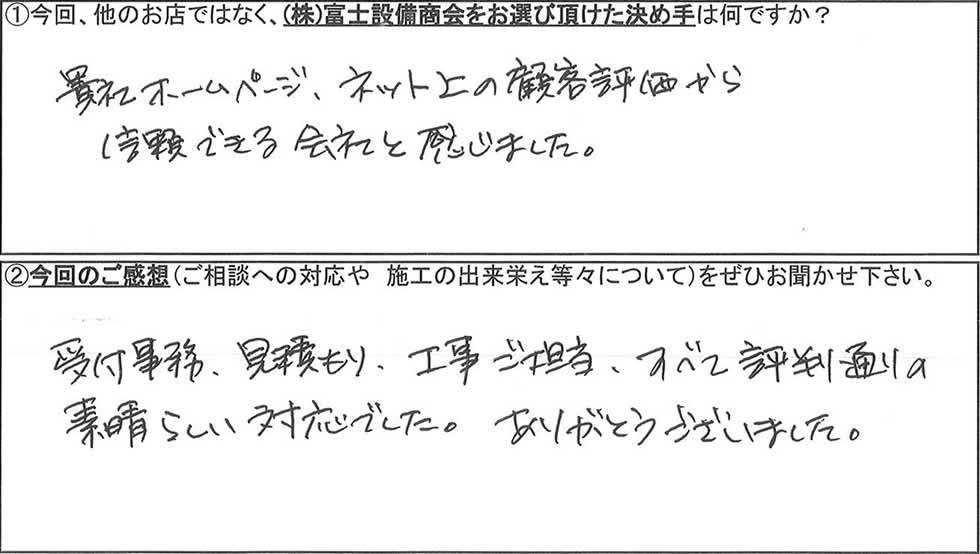 ①今回、他のお店ではなく、(株)富士設備商会をお選び頂けた決め手は何ですか？
貴社ホームページ、ネット上の顧客評価から
信頼できる会社と感じました。
②今回のご感想(ご相談への対応や　施工の出来栄え等々について)をぜひお聞かせ下さい。
受付事務、見積もり、工事ご担当、すべて評判通りの
素晴らしい対応でした。ありがとうございました。